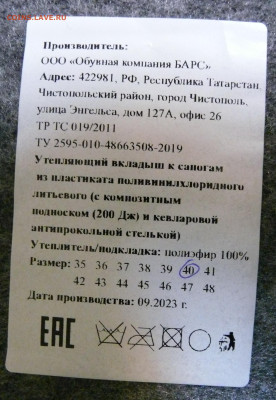 Производитель:
ООО «Обувная компания БАРС»
Адрес: 422981, РФ, Республика Татарстан,
Чистопольский район, город Чистополь,
улица Энгельса, дом 127А, офис 26
ТР ТС 019/2011
ТУ 2595-010-48663508-2019
Утепляющий вкладыш к сапогам
из пластиката поливинилхлоридного
литьевого (с композитным
подноском (200 Дж) и кевларовой
антипрокольной стелькой)
Утеплитель/подкладка: полиэфир 100%
Размер: 35 36 37 38 39 40 41
42 43 44 45 46 47 48
Дата производства: 09.2023 г.
EAC